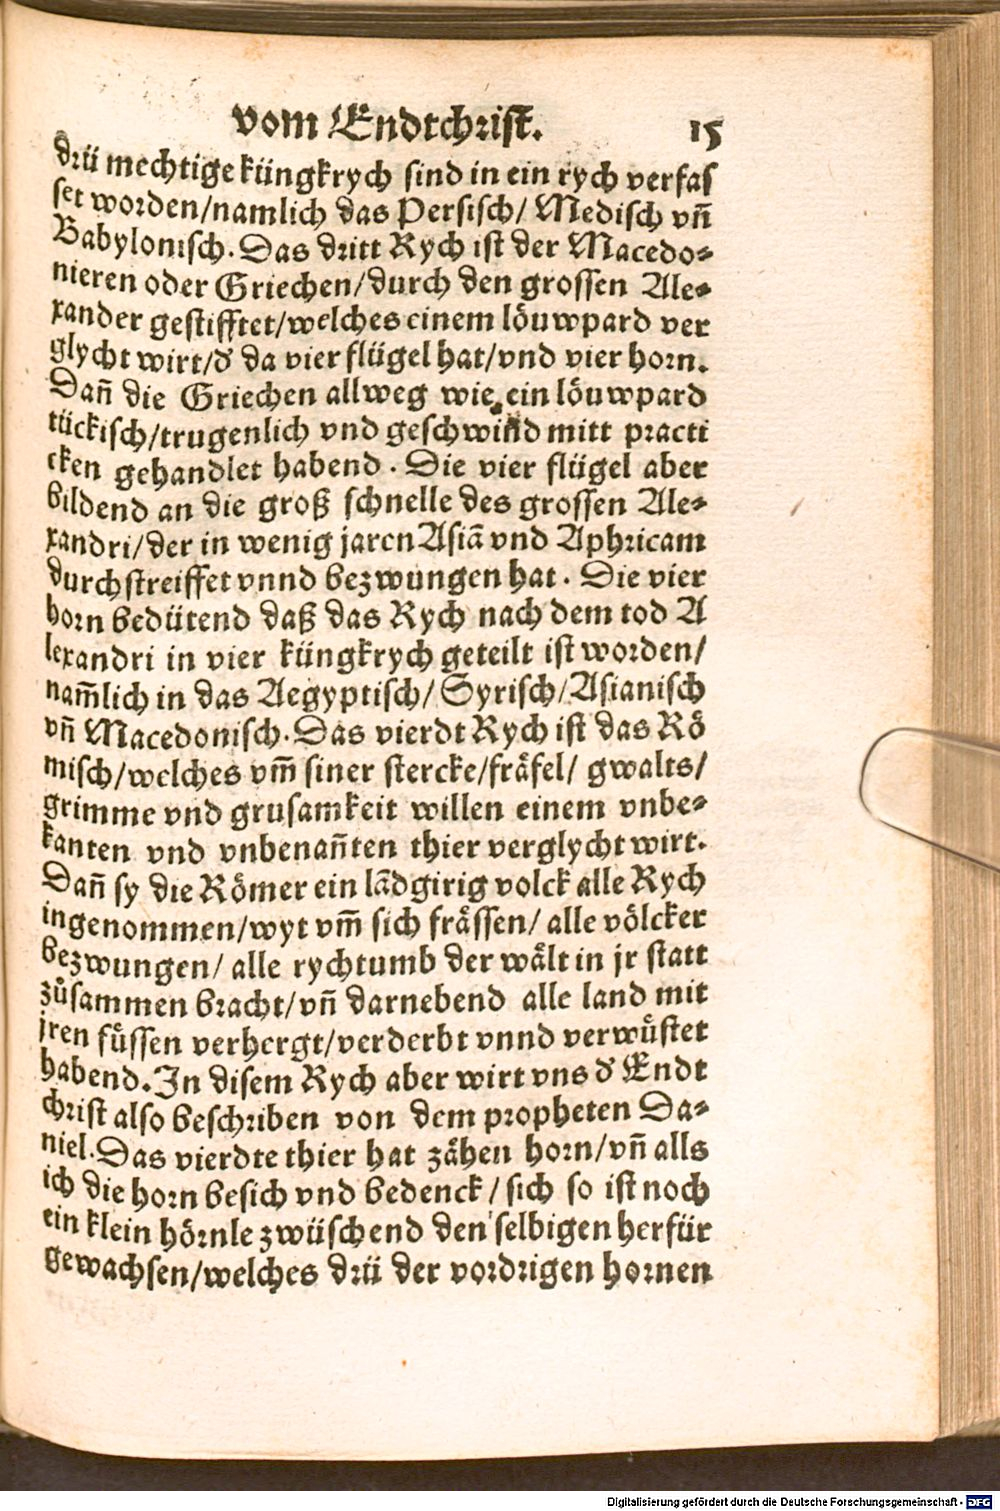 vom Endtchrist. 15
drü mechtige küngkrych sind in ein rych verfas
set worden/namlich das Persisch/ Medisch vñ
Babylonisch. Das dritt Rych ist der Macedo⸗
nieren oder Griechen/durch den grossen Ale⸗
xander gestifftet/welches einem löuwpard ver
glycht wirt/d' da vier flügel hat/vnd vier horn.
Dañ die Griechen allweg wie ein löuwpard
tückisch/trugenlich vnd geschwind mitt practi
cken gehandlet habend. Die vier flügel aber
bildend an die groß schnelle des grossen Ale⸗
xandri/der in wenig jaren Asiā vnd Aphricam
durchstreiffet vnnd bezwungen hat. Die vier
horn bedütend daß das Rych nach dem tod A
lexandri in vier küngkrych geteilt ist worden/
nam̄lich in das Aegyptisch/Syrisch/Asianisch
vñ Macedonisch. Das vierdt Rych ist das Rö
misch/welches vm̄ siner stercke/fräfel/ gwalts/
grimme vnd grusamkeit willen einem vnbe⸗
kanten vnd vnbenañten thier verglycht wirt.
Dañ sy die Römer ein lādgirig volck alle Rych
ingenommen/wyt vm̄ sich frässen/ alle völcker
bezwungen/ alle rychtumb der wält in jr statt
zůsammen bracht/vñ darnebend alle land mit
jren füssen verhergt/verderbt vnnd verwüstet
habend. In disem Rych aber wirt vns d' Endt
christ also beschriben von dem propheten Da⸗
niel. Das vierdte thier hat zähen horn/vñ alls
ich die horn besich vnd bedenck/sich so ist noch
ein klein hörnle zwüschend den selbigen herfür
gewachsen/welches drü der vordrigen hornen
Digitalisierung gefördert durch die Deutsche Forschungsgemeinschaft - DFG